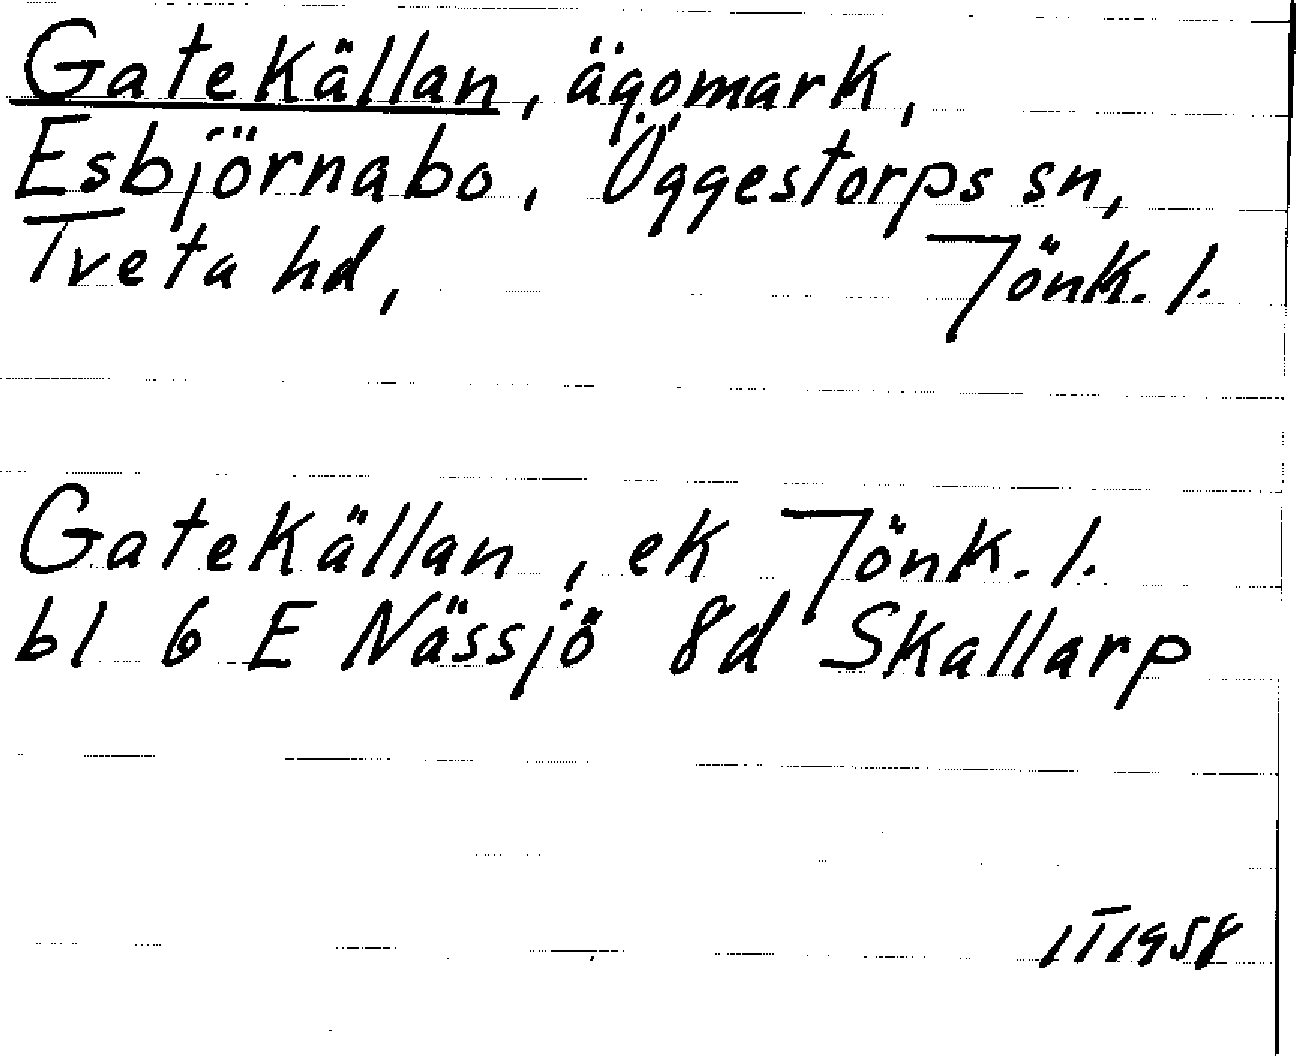 Gatekällan, ägomark,
Esbjörnabo, Öggestorps sn,
Tveta hd, Jönk. l.
Gatekällan, ek Jönk. l.
bl 6 E Nässjö 8d Skallarp
1T1958